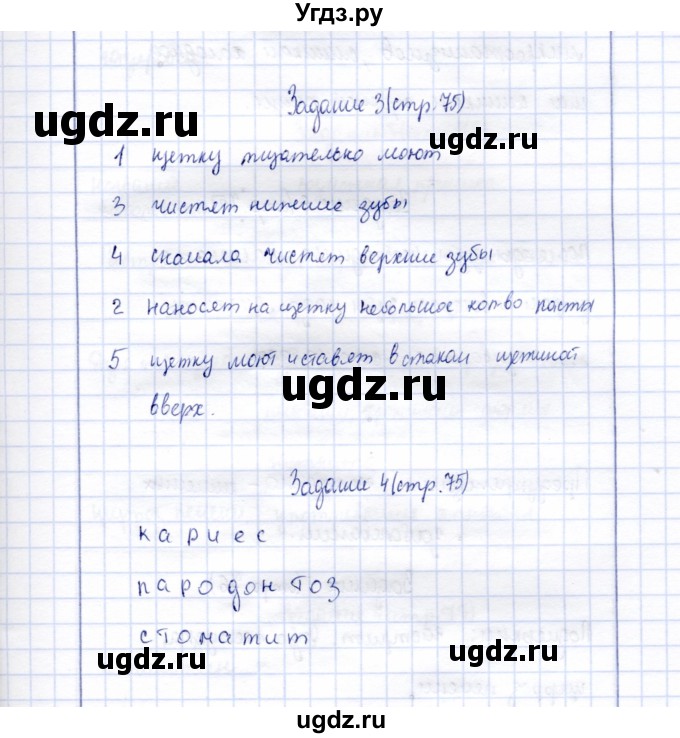 Угдз.ру
Задание 3(стр.75)
ugdz.ru
ugdz.ru
1 щетку тщательно моют
3 чистят нижние зубы
4 сначала чистят верхние зубы
ugdz.ru
2 наносят на щетку небольшое кол-во пасты
5 щетку моют и ставят в стакан щетиной
ugdz.ru
вверх.
Задание 4(стр.75)
кариес
ugdz.ru
пародонтоз
стоматит
ugdz.ru
ugdz.ru
ugdz.ru